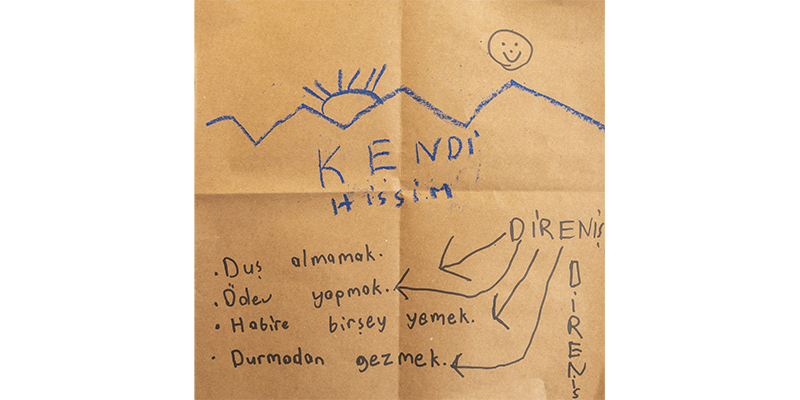 KENDİ
HİSSİM
DİRENİŞ
. Duş almamak.
. Ödev yapmak.
. Habire birşey yemek.
. Durmadan gezmek.
DİRENİŞ